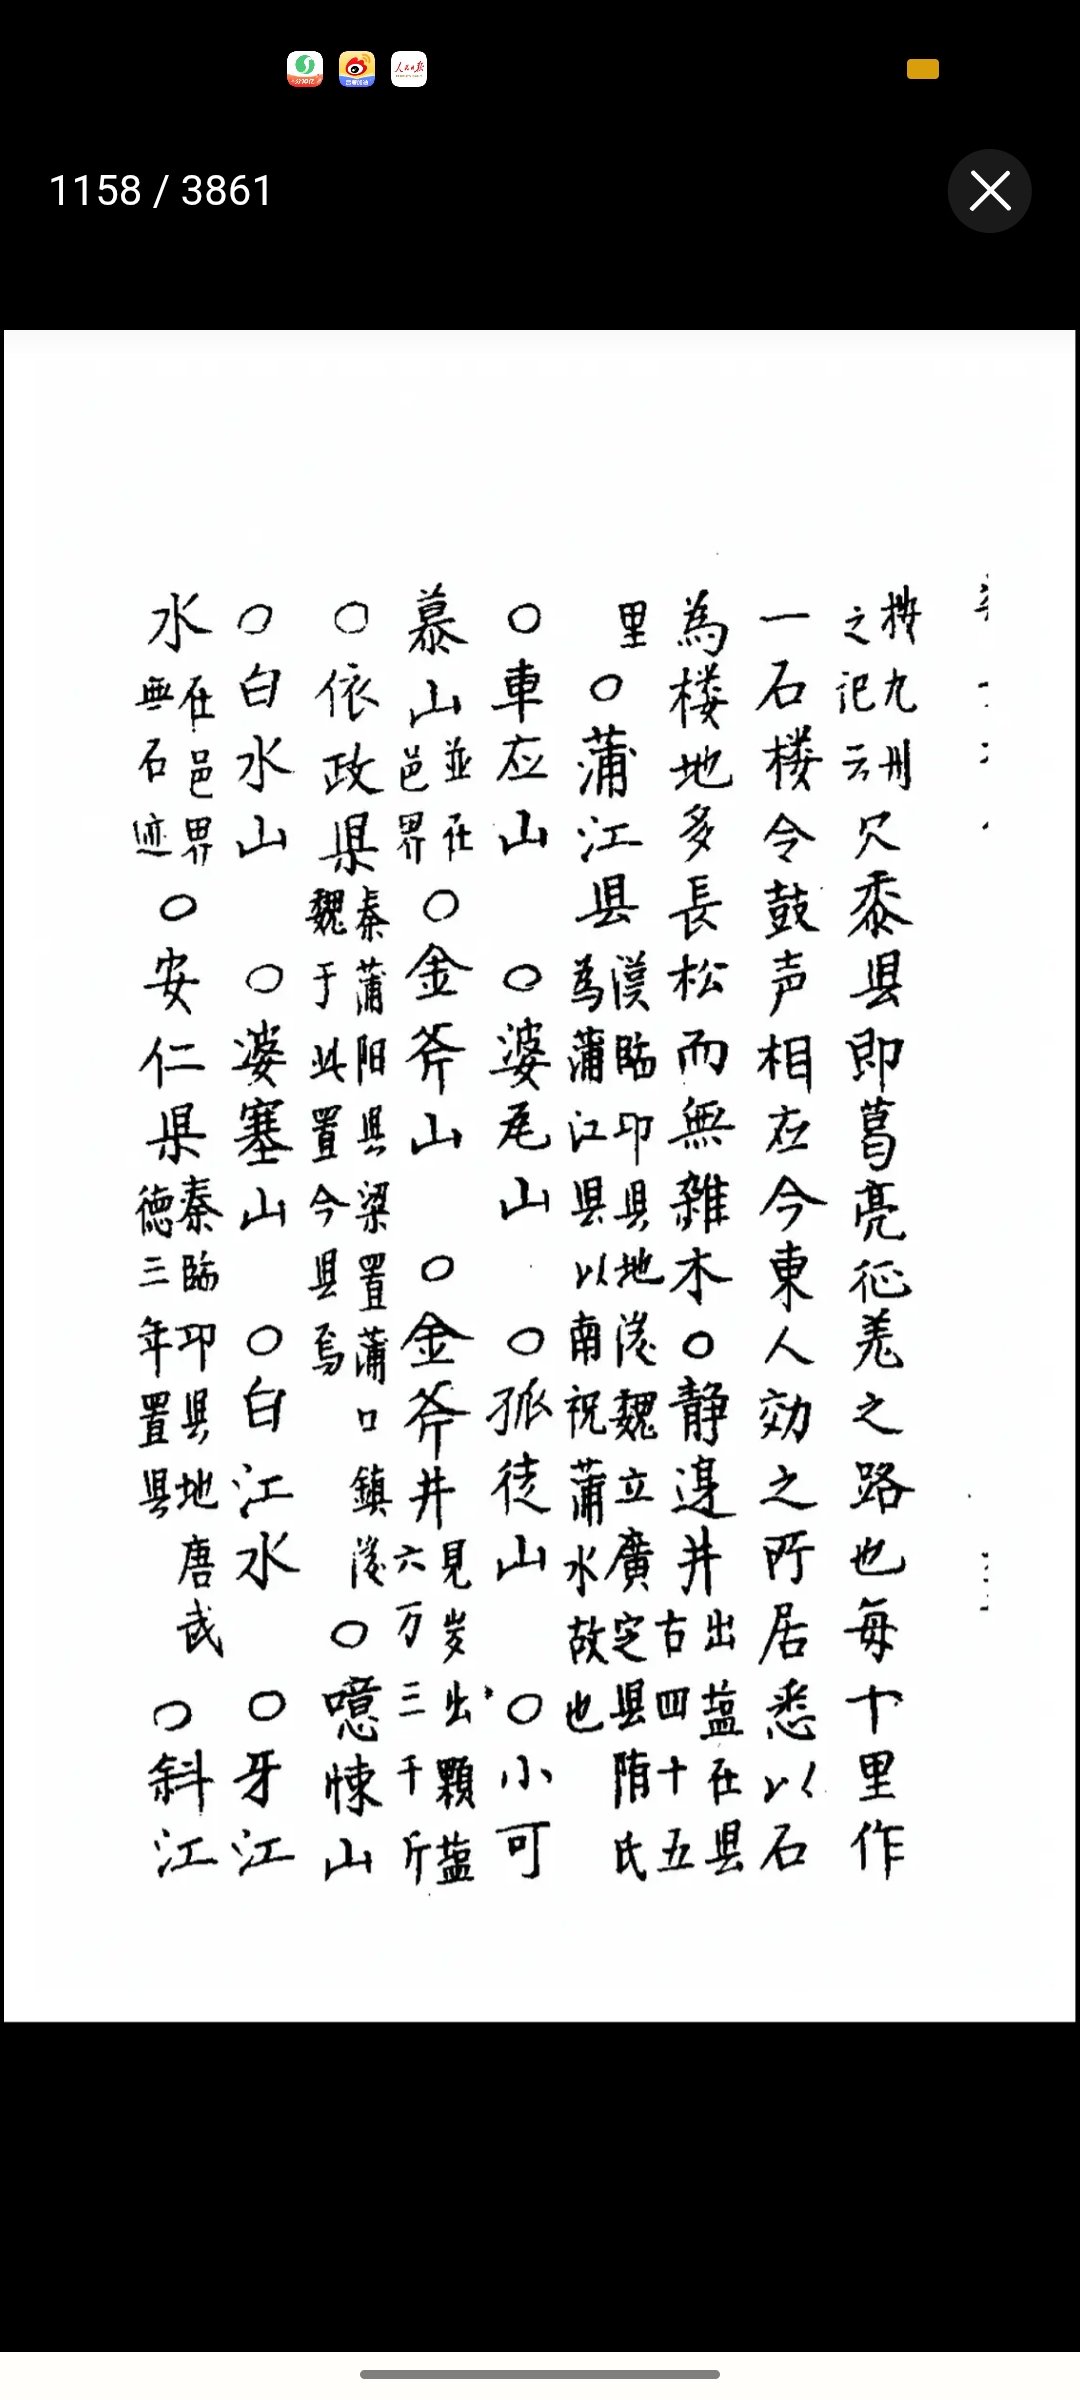 1158 / 3861
按九州之記云欠黍县即葛亮征羌之路也每十里作
一石楼令鼓声相应今東人効之所居悉以石
為楼地多長松而無雑木○静邉井出蓝在县古四十五
里○蒲江县漢臨邛县地后魏立廣定县隋氏為蒲江县以南祝蒲水故也
○車应山○婆尾山○孤徒山○小可
慕山並在邑界○金斧山○金斧井見岁出顆蓝六万三千斤
○依政県秦蒲阳县梁置蒲口鎮后魏于此置今县焉○噫悚山
○白水山○婆塞山○白江水○牙江
水在邑界無石迹○安仁県秦臨邛县地唐武德三年置县○斜江